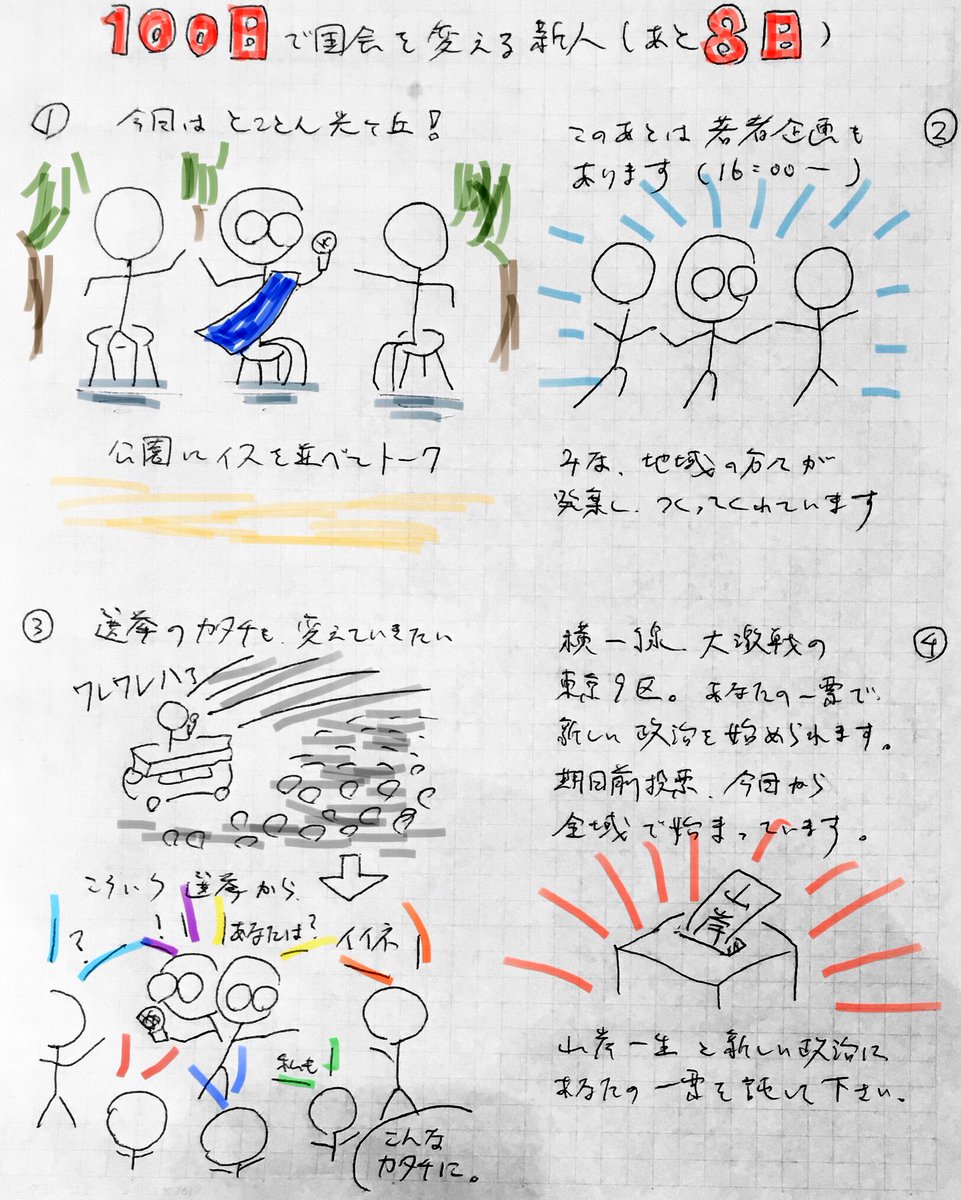 100日で国会を変える新人(あと8日)
① 今日は とことん 光が丘!
公園にイスを並べてトーク
② このあとは 若者企画も
あります (16:00ー)
みな、地域の方々が
発案し、つくってくれています
③ 選挙のカタチも、変えていきたい
ワレワレハァ
こういう 選挙から、
?
!
あなたは?
イイネ
私も
こんな
カタチに。
④ 横一線 大激戦の
東京9区。あなたの一票で
新しい政治を始められます。
期日前投票、今日から
全域で始まっています。
山岸
山岸一生と新しい政治に
あなたの一票を託して下さい。